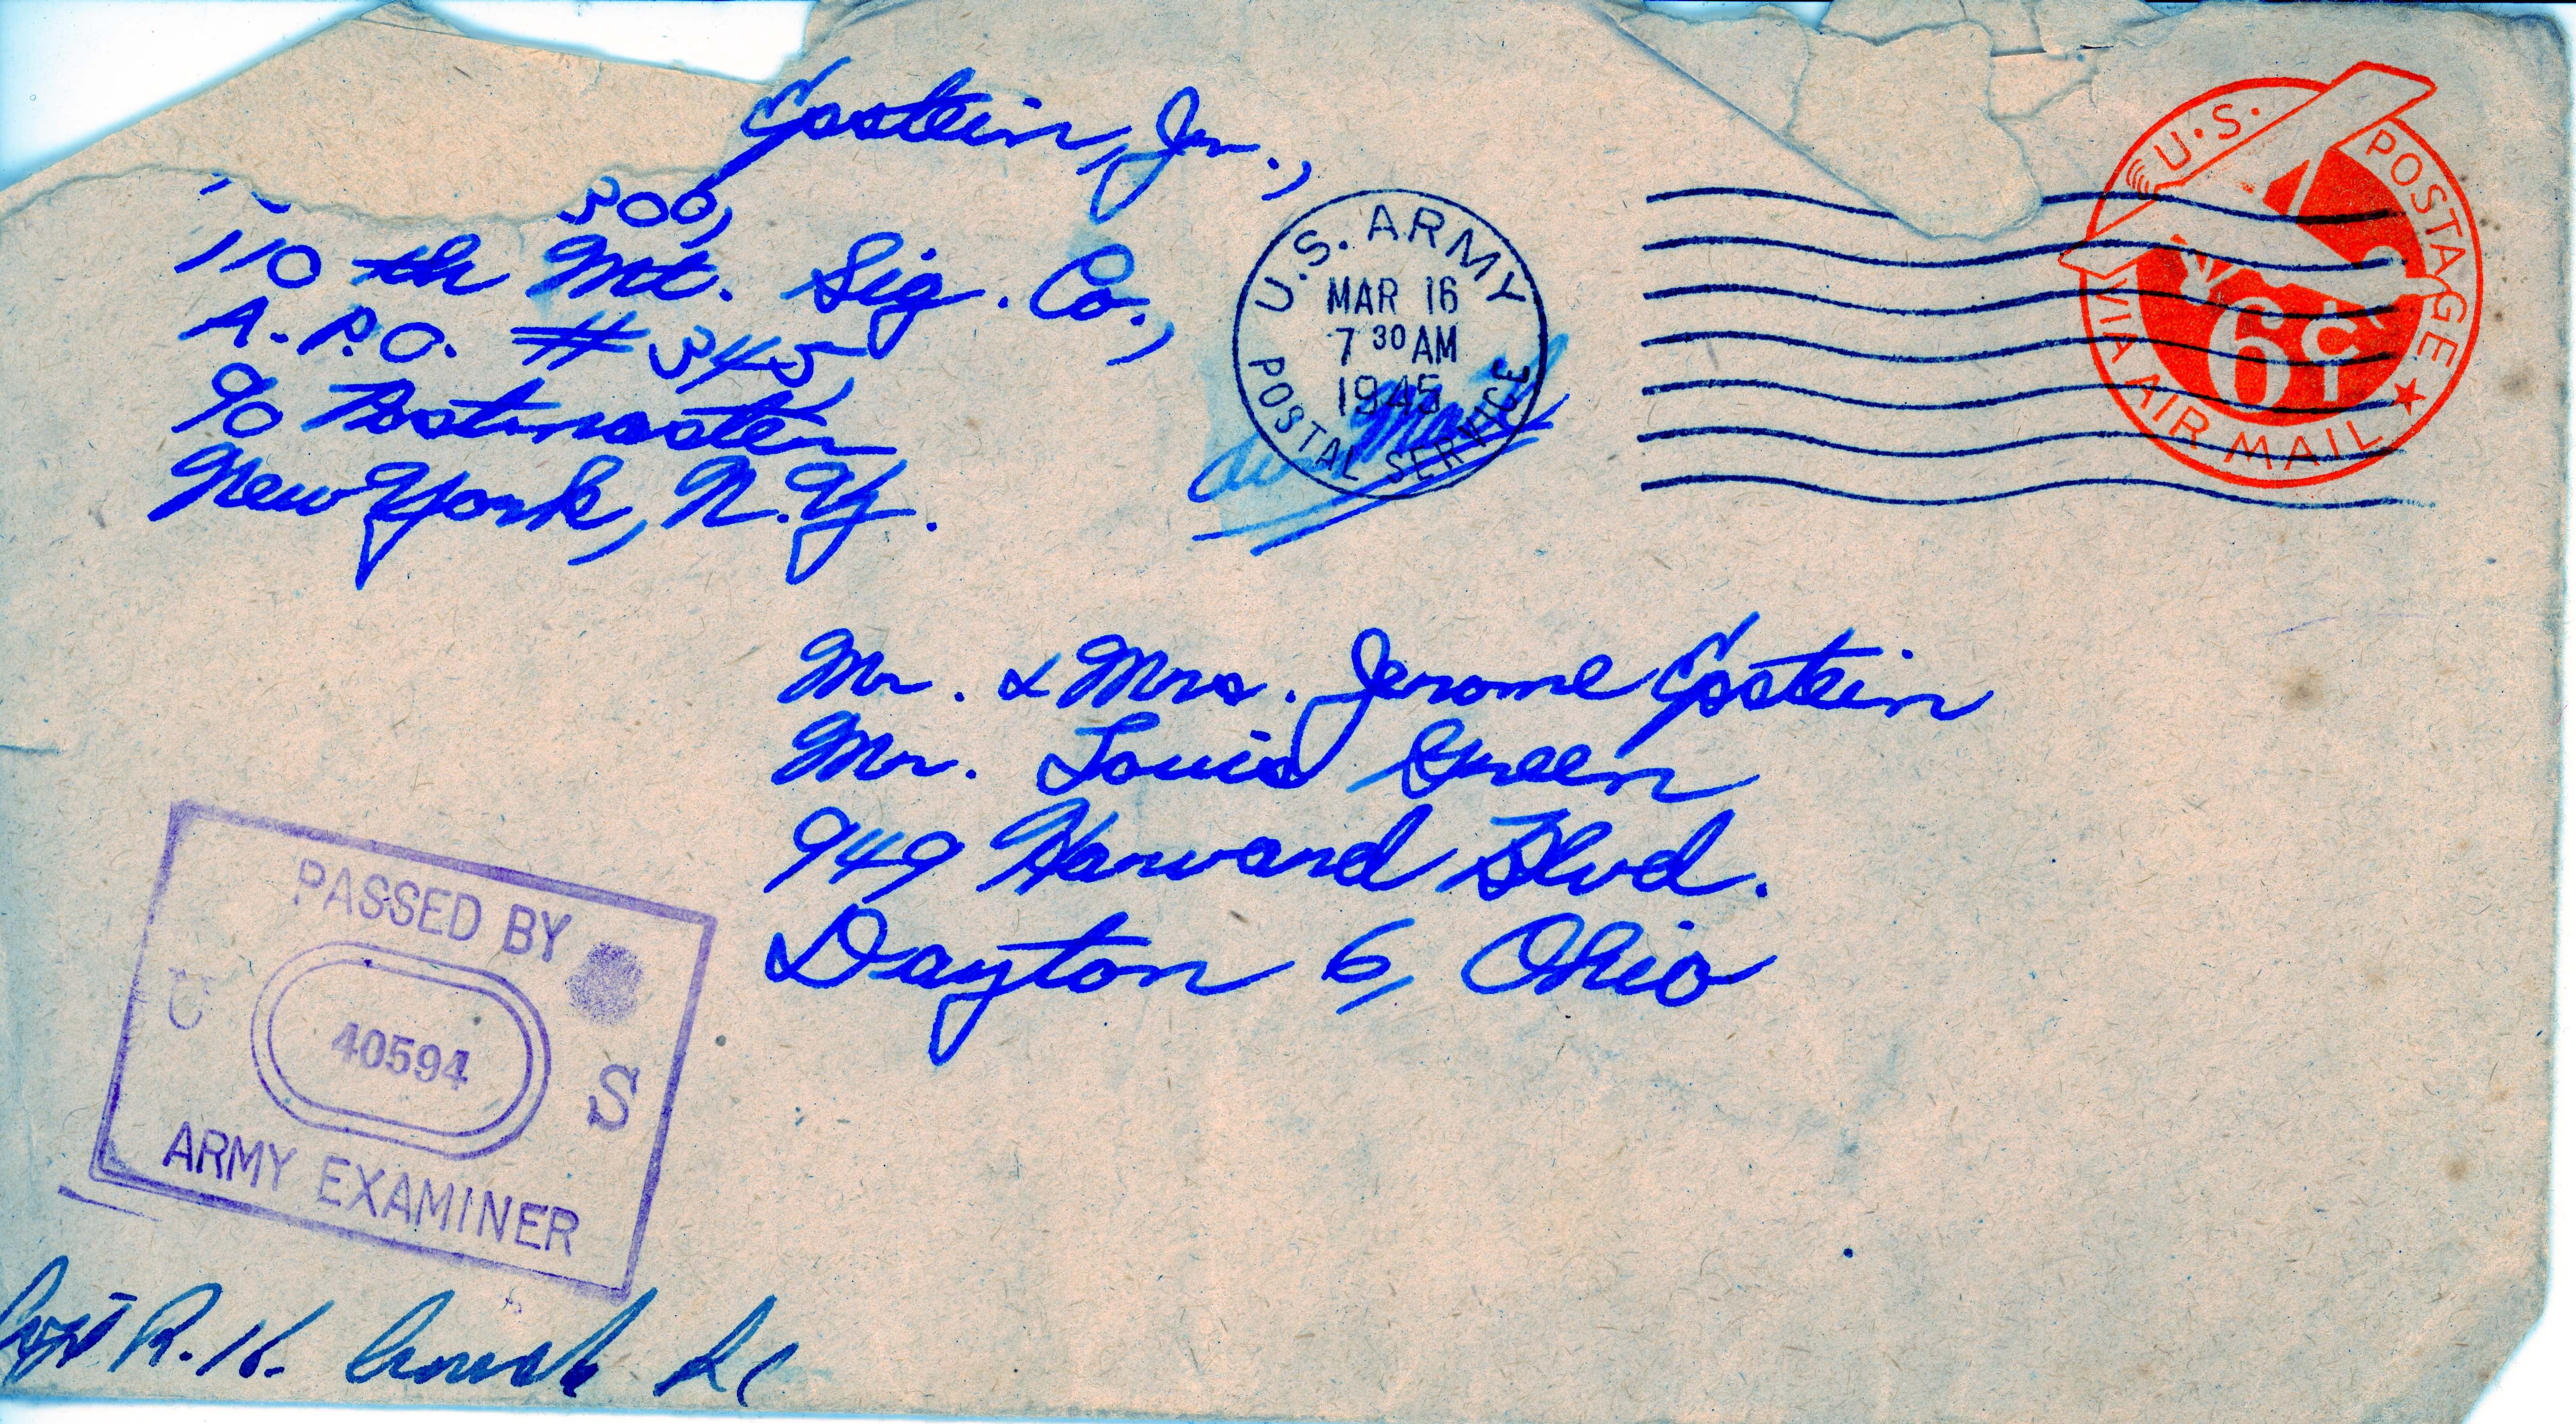 Epstein, Jr.,
300,
110 th Mt. Sig. Co.,
A.P.O. # 345,
℅ Postmaster
New York, N.Y.
U.S. ARMY
MAR 16
7 30 AM
1945
POSTAL SERVICE
Air Mail
U.S. POSTAGE
6¢
VIA AIR MAIL
Mr. & Mrs. Jerome Epstein
Mr. Louis Green
949 Harvard Blvd.
Dayton 6, Ohio
PASSED BY
U S
40594
ARMY EXAMINER
Capt R. H.